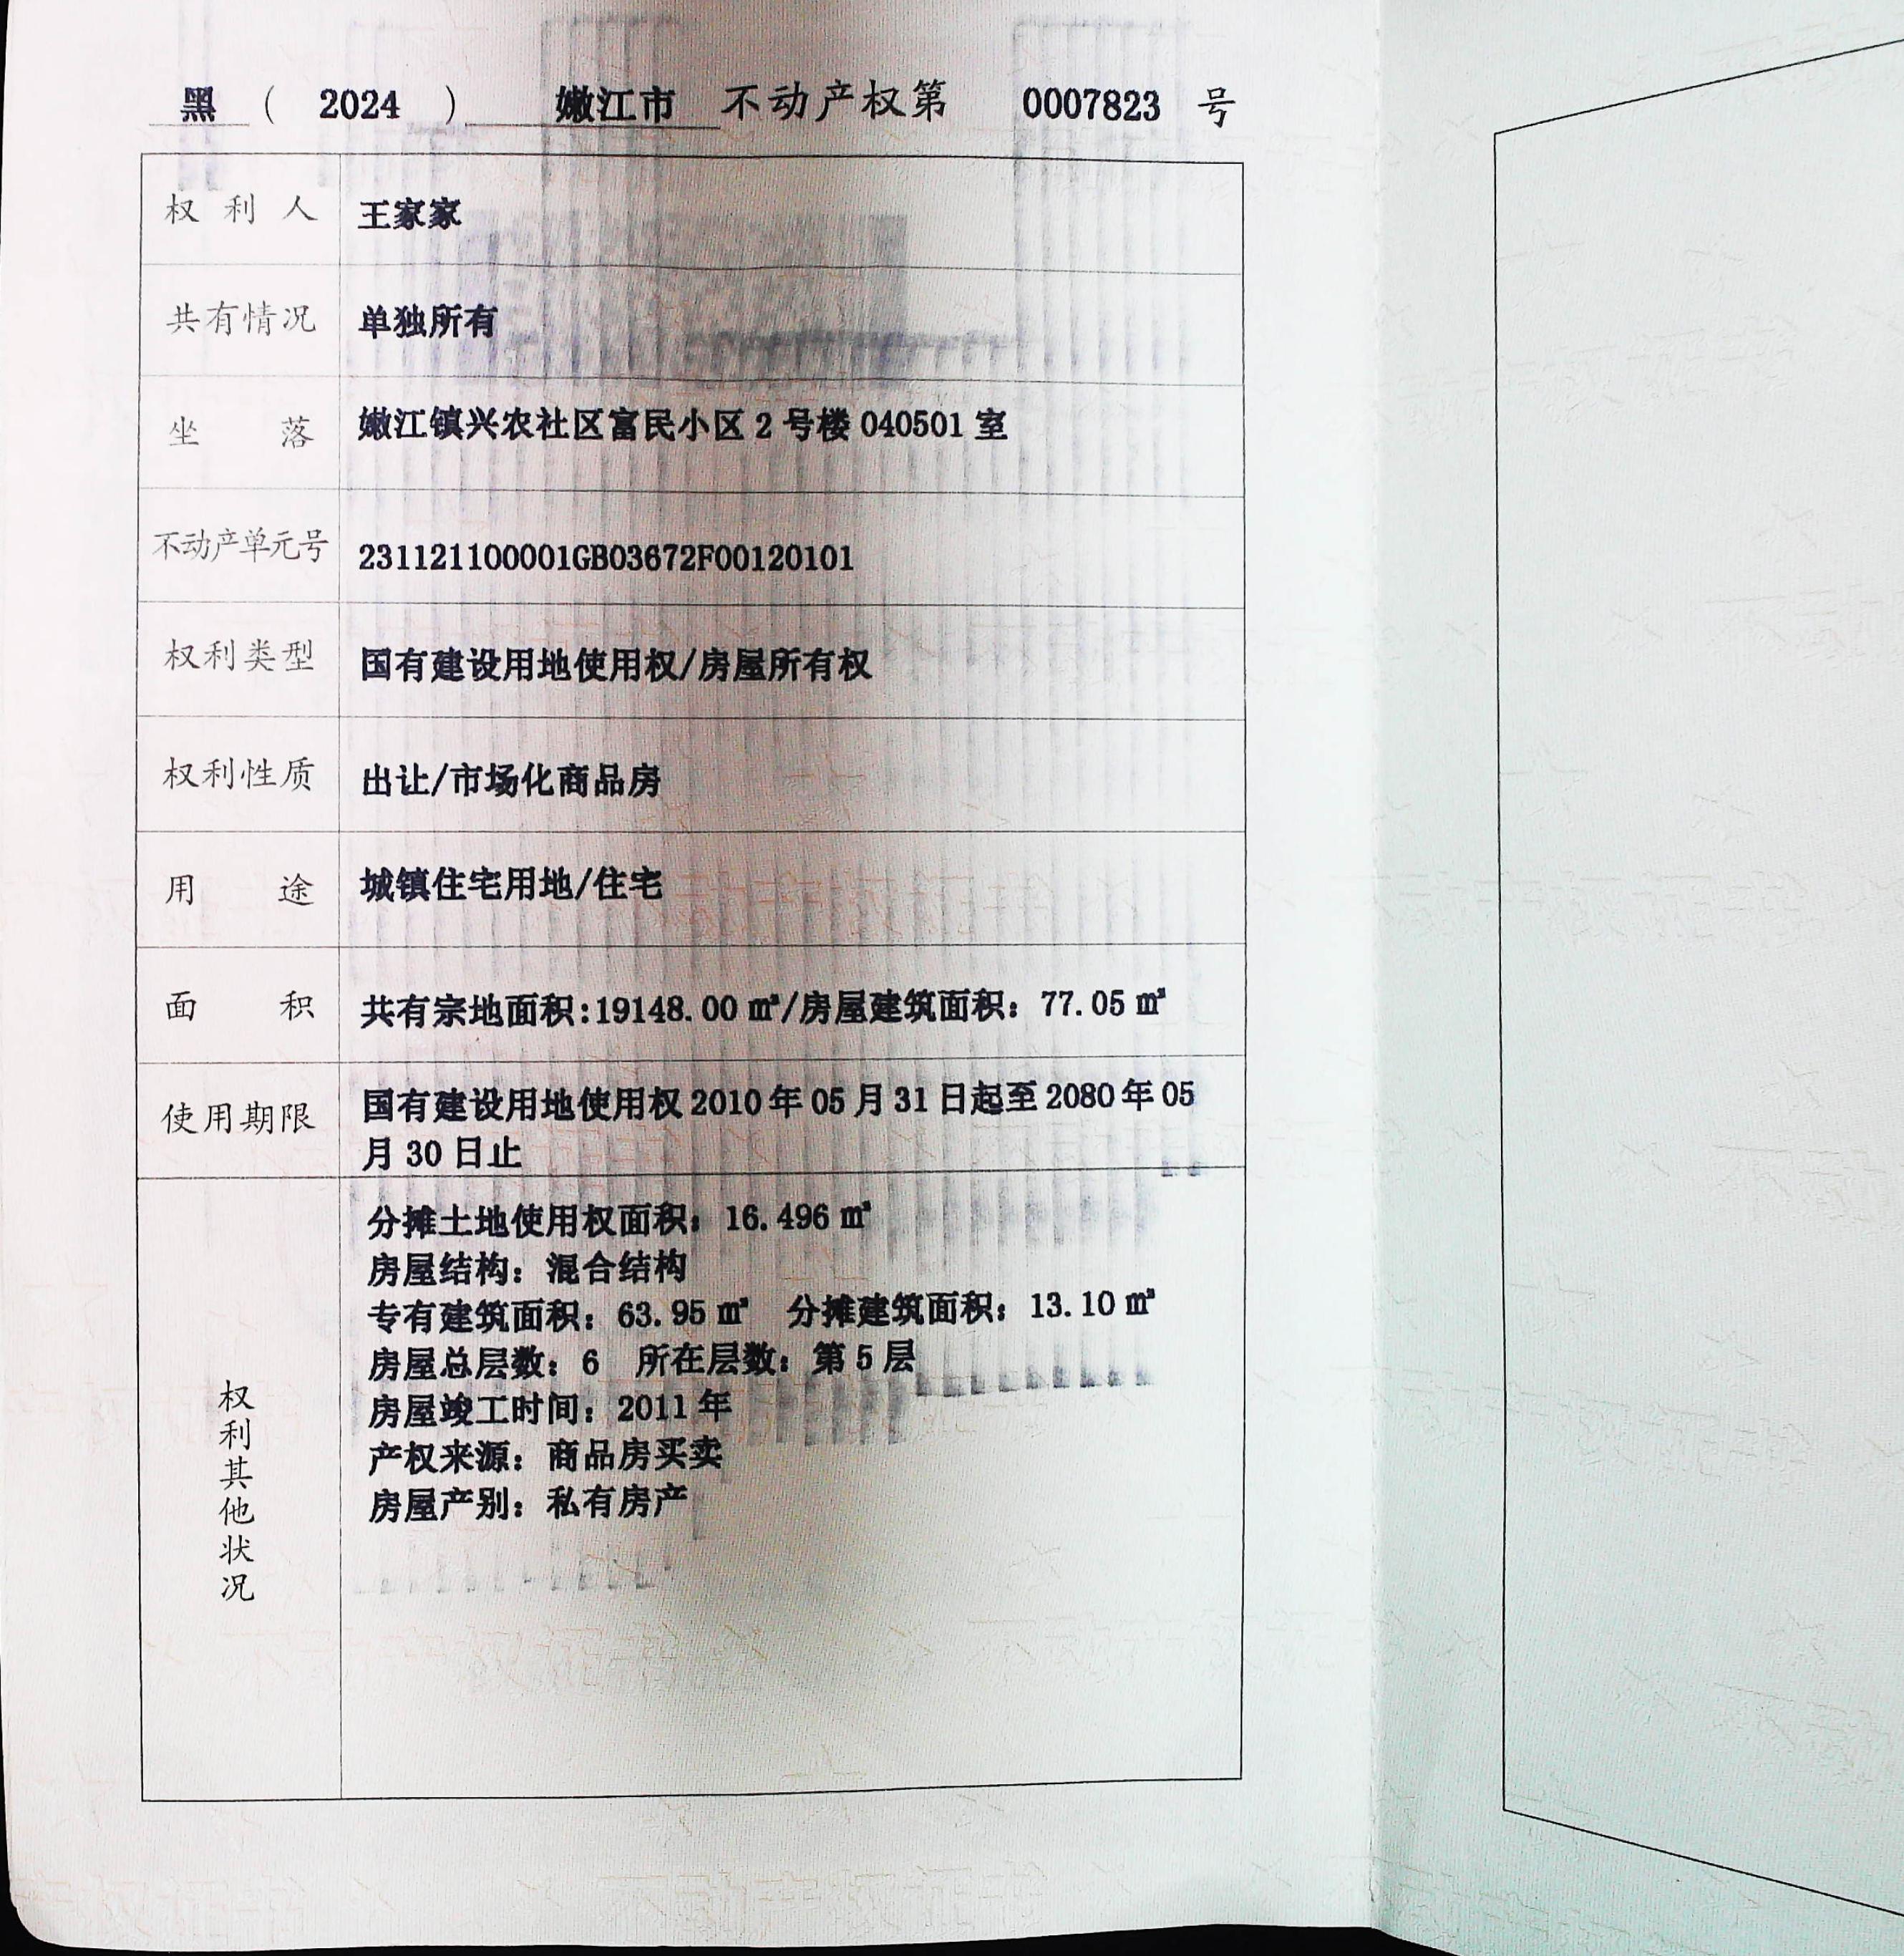 黑 ( 2024 ) 嫩江市 不动产权第 0007823 号
权利人 王家家
共有情况 单独所有
坐落 嫩江镇兴农社区富民小区 2 号楼 040501 室
不动产单元号 231121100001GB03672F00120101
权利类型 国有建设用地使用权/房屋所有权
权利性质 出让/市场化商品房
用途 城镇住宅用地/住宅
面积 共有宗地面积:19148.00 ㎡/房屋建筑面积：77.05 ㎡
使用期限 国有建设用地使用权 2010 年 05 月 31 日起至 2080 年 05
月 30 日止
权利其他状况
分摊土地使用权面积：16.496 ㎡
房屋结构：混合结构
专有建筑面积：63.95 ㎡ 分摊建筑面积：13.10 ㎡
房屋总层数：6 所在层数：第 5 层
房屋竣工时间：2011 年
产权来源：商品房买卖
房屋产别：私有房产